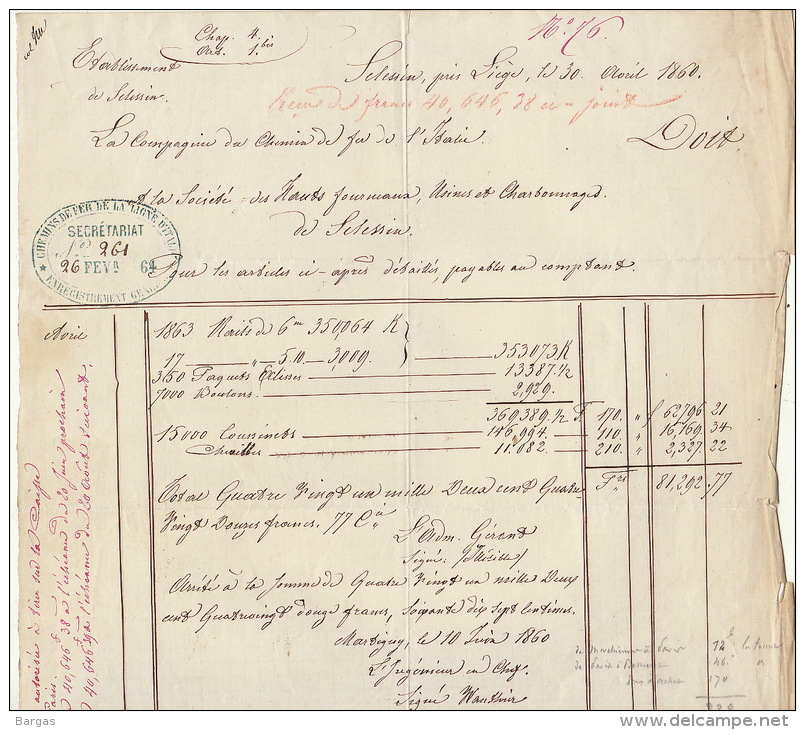 N° 76.
Chap. 4.
Art. 1. bis
Etablissement
de Sclessin.
Sclessin, près Liège, le 30 Avril 1860.
Reçu de francs 40,646,38 ci-joint
La Compagnie du Chemin de fer de l'Italie.
Doit
à la Société des Hauts fourneaux, Usines et Charbonnages
de Sclessin.
CHEMINS DE FER DE LA LIGNE D'ITALIE
SECRÉTARIAT
N° 261
26 FEVR 64
ENREGISTREMENT GENERAL
Pour les articles ci-après détaillés, payables au comptant.
Avril
1863 Rails de 6m 350,064 K
17 — " — 5.10 — 3,009. — 353073.K
350 Paquets Eclisses — 13387.1/2
7000 Boulons — 2,929.
369,389.1/2 F 170. " f 62796 21
15000 Coussinets — 146,994 — 110. " 16,169. 34
Chevilles — 11.082. — 210. " 2,327. 22
Total Quatre Vingt un mille Deux cent Quatre
Frs 81,292.77
Vingt Douze francs. 77 Cs
L'Adm. Gérant
Signé (Illisible)
Arrêté à la somme de Quatre Vingt un mille Deux
cent Quatrevingt douze francs, soixante dix sept centimes.
Martigny, le 10 Juin 1860
L'Ingénieur en Chef
Signé
autorisée à tirer sur la Caisse
Paris.
40,646f 38 à l'échéance du 20 juin prochain
40,646f 39 à l'échéance du 20 Août suivant,
12
46.
170
228
Bargas
delcampe.net